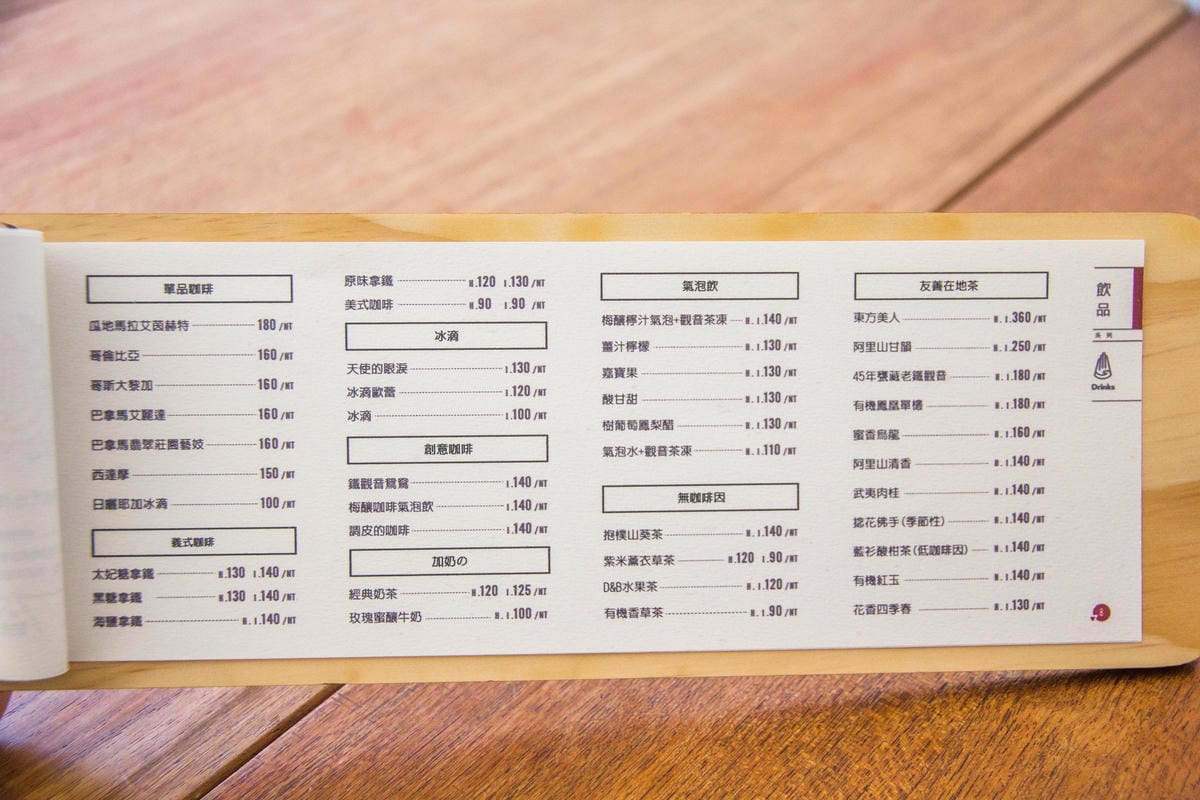 單品咖啡
瓜地馬拉艾茵赫特 180/NT
哥倫比亞 160/NT
哥斯大黎加 160/NT
巴拿馬艾麗達 160/NT
巴拿馬翡翠莊園藝妓 160/NT
西達摩 150/NT
日曬耶加冰滴 100/NT
義式咖啡
太妃糖拿鐵 H.130 I.140/NT
黑糖拿鐵 H.130 I.140/NT
海鹽拿鐵 H.I.140/NT
原味拿鐵 H.120 I.130/NT
美式咖啡 H.90 I.90/NT
冰滴
天使的眼淚 I.130/NT
冰滴歐蕾 I.120/NT
冰滴 I.100/NT
創意咖啡
鐵觀音鴛鴦 I.140/NT
梅釀咖啡氣泡飲 I.140/NT
調皮的咖啡 I.140/NT
加奶の
經典奶茶 H.120 I.125/NT
玫瑰蜜釀牛奶 H.I.100/NT
氣泡飲
梅釀檸汁氣泡+觀音茶凍 H.I.140/NT
薑汁檸檬 H.I.130/NT
嘉寶果 H.I.130/NT
酸甘甜 H.I.130/NT
樹葡萄鳳梨醋 H.I.130/NT
氣泡水+觀音茶凍 H.I.110/NT
無咖啡因
抱樸山葵茶 H.I.140/NT
紫米薰衣草茶 H.120 I.90/NT
D&B水果茶 H.I.120/NT
有機香草茶 H.I.90/NT
友善在地茶
東方美人 H.I.360/NT
阿里山甘韻 H.I.250/NT
45年甕藏老鐵觀音 H.I.180/NT
有機鳳凰單欉 H.I.180/NT
蜜香烏龍 H.I.160/NT
阿里山清香 H.I.140/NT
武夷肉桂 H.I.140/NT
捻花佛手(季節性) H.I.140/NT
藍衫酸柑茶(低咖啡因) H.I.140/NT
有機紅玉 H.I.140/NT
花香四季春 H.I.130/NT
飲品
系列
Drinks